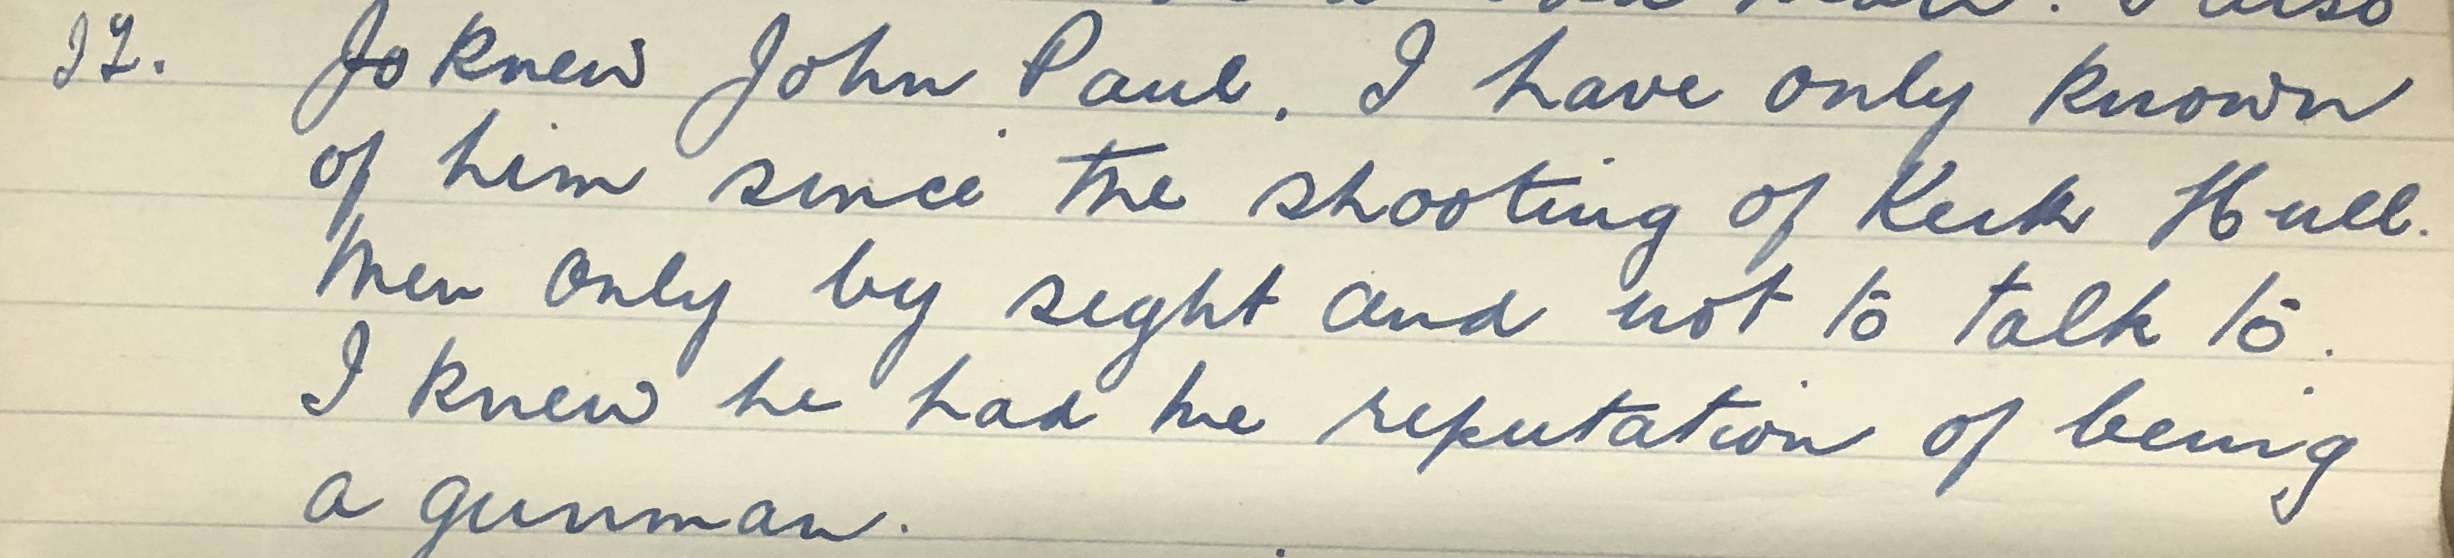 also
Jo knew John Paul. I have only known
of him since the shooting of Kerk Hull.
Then only by sight and not to talk to.
I knew he had the reputation of being
a gunman.